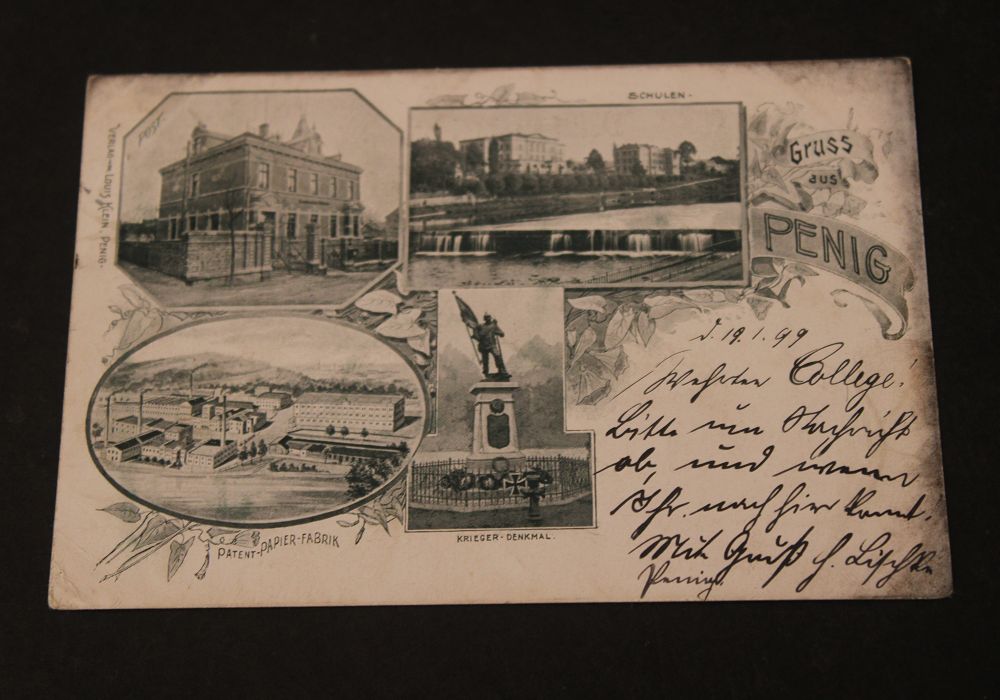 POST.
SCHULEN.
VERLAG von LOUIS KLEIN, PENIG.
Gruss
aus
PENIG
d. 19.1.99
Werter College!
Bitte um Nachricht
ob, und wenn
Ihr nach hier kommt.
Mit Gruß
Penig.
PATENT-PAPIER-FABRIK
KRIEGER-DENKMAL.